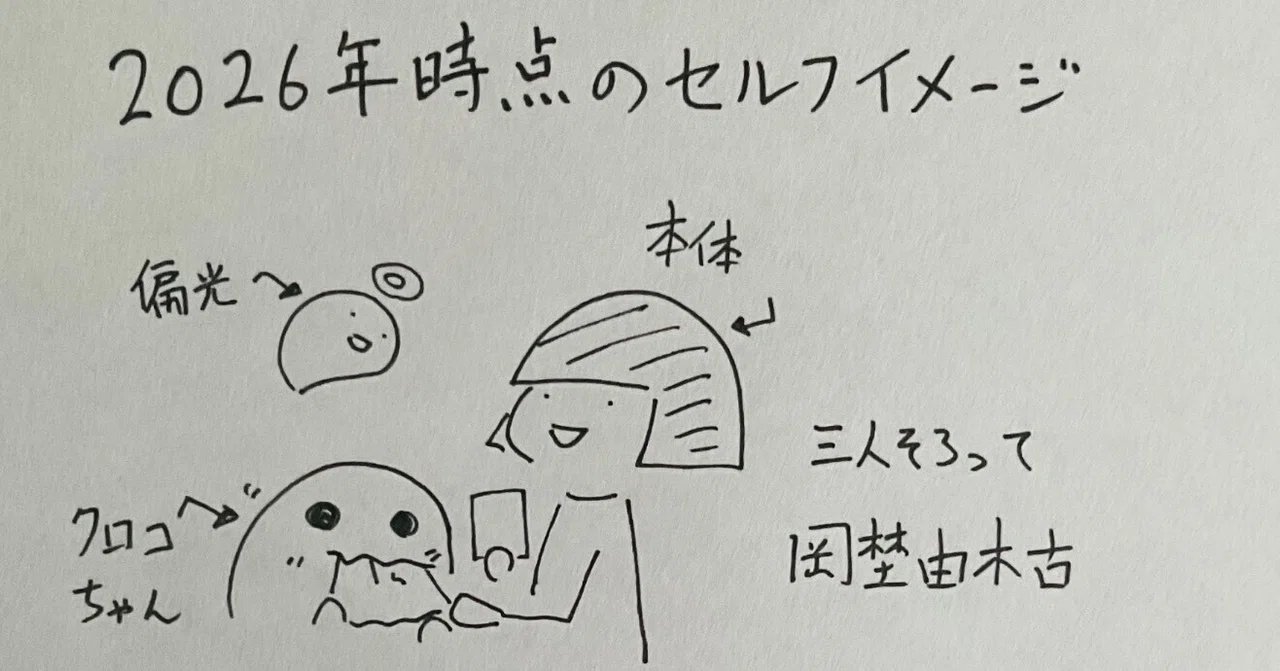 2026年時点のセルフイメージ
本体
偏光
三人そろって
クロコ
ちゃん
岡埜由木古